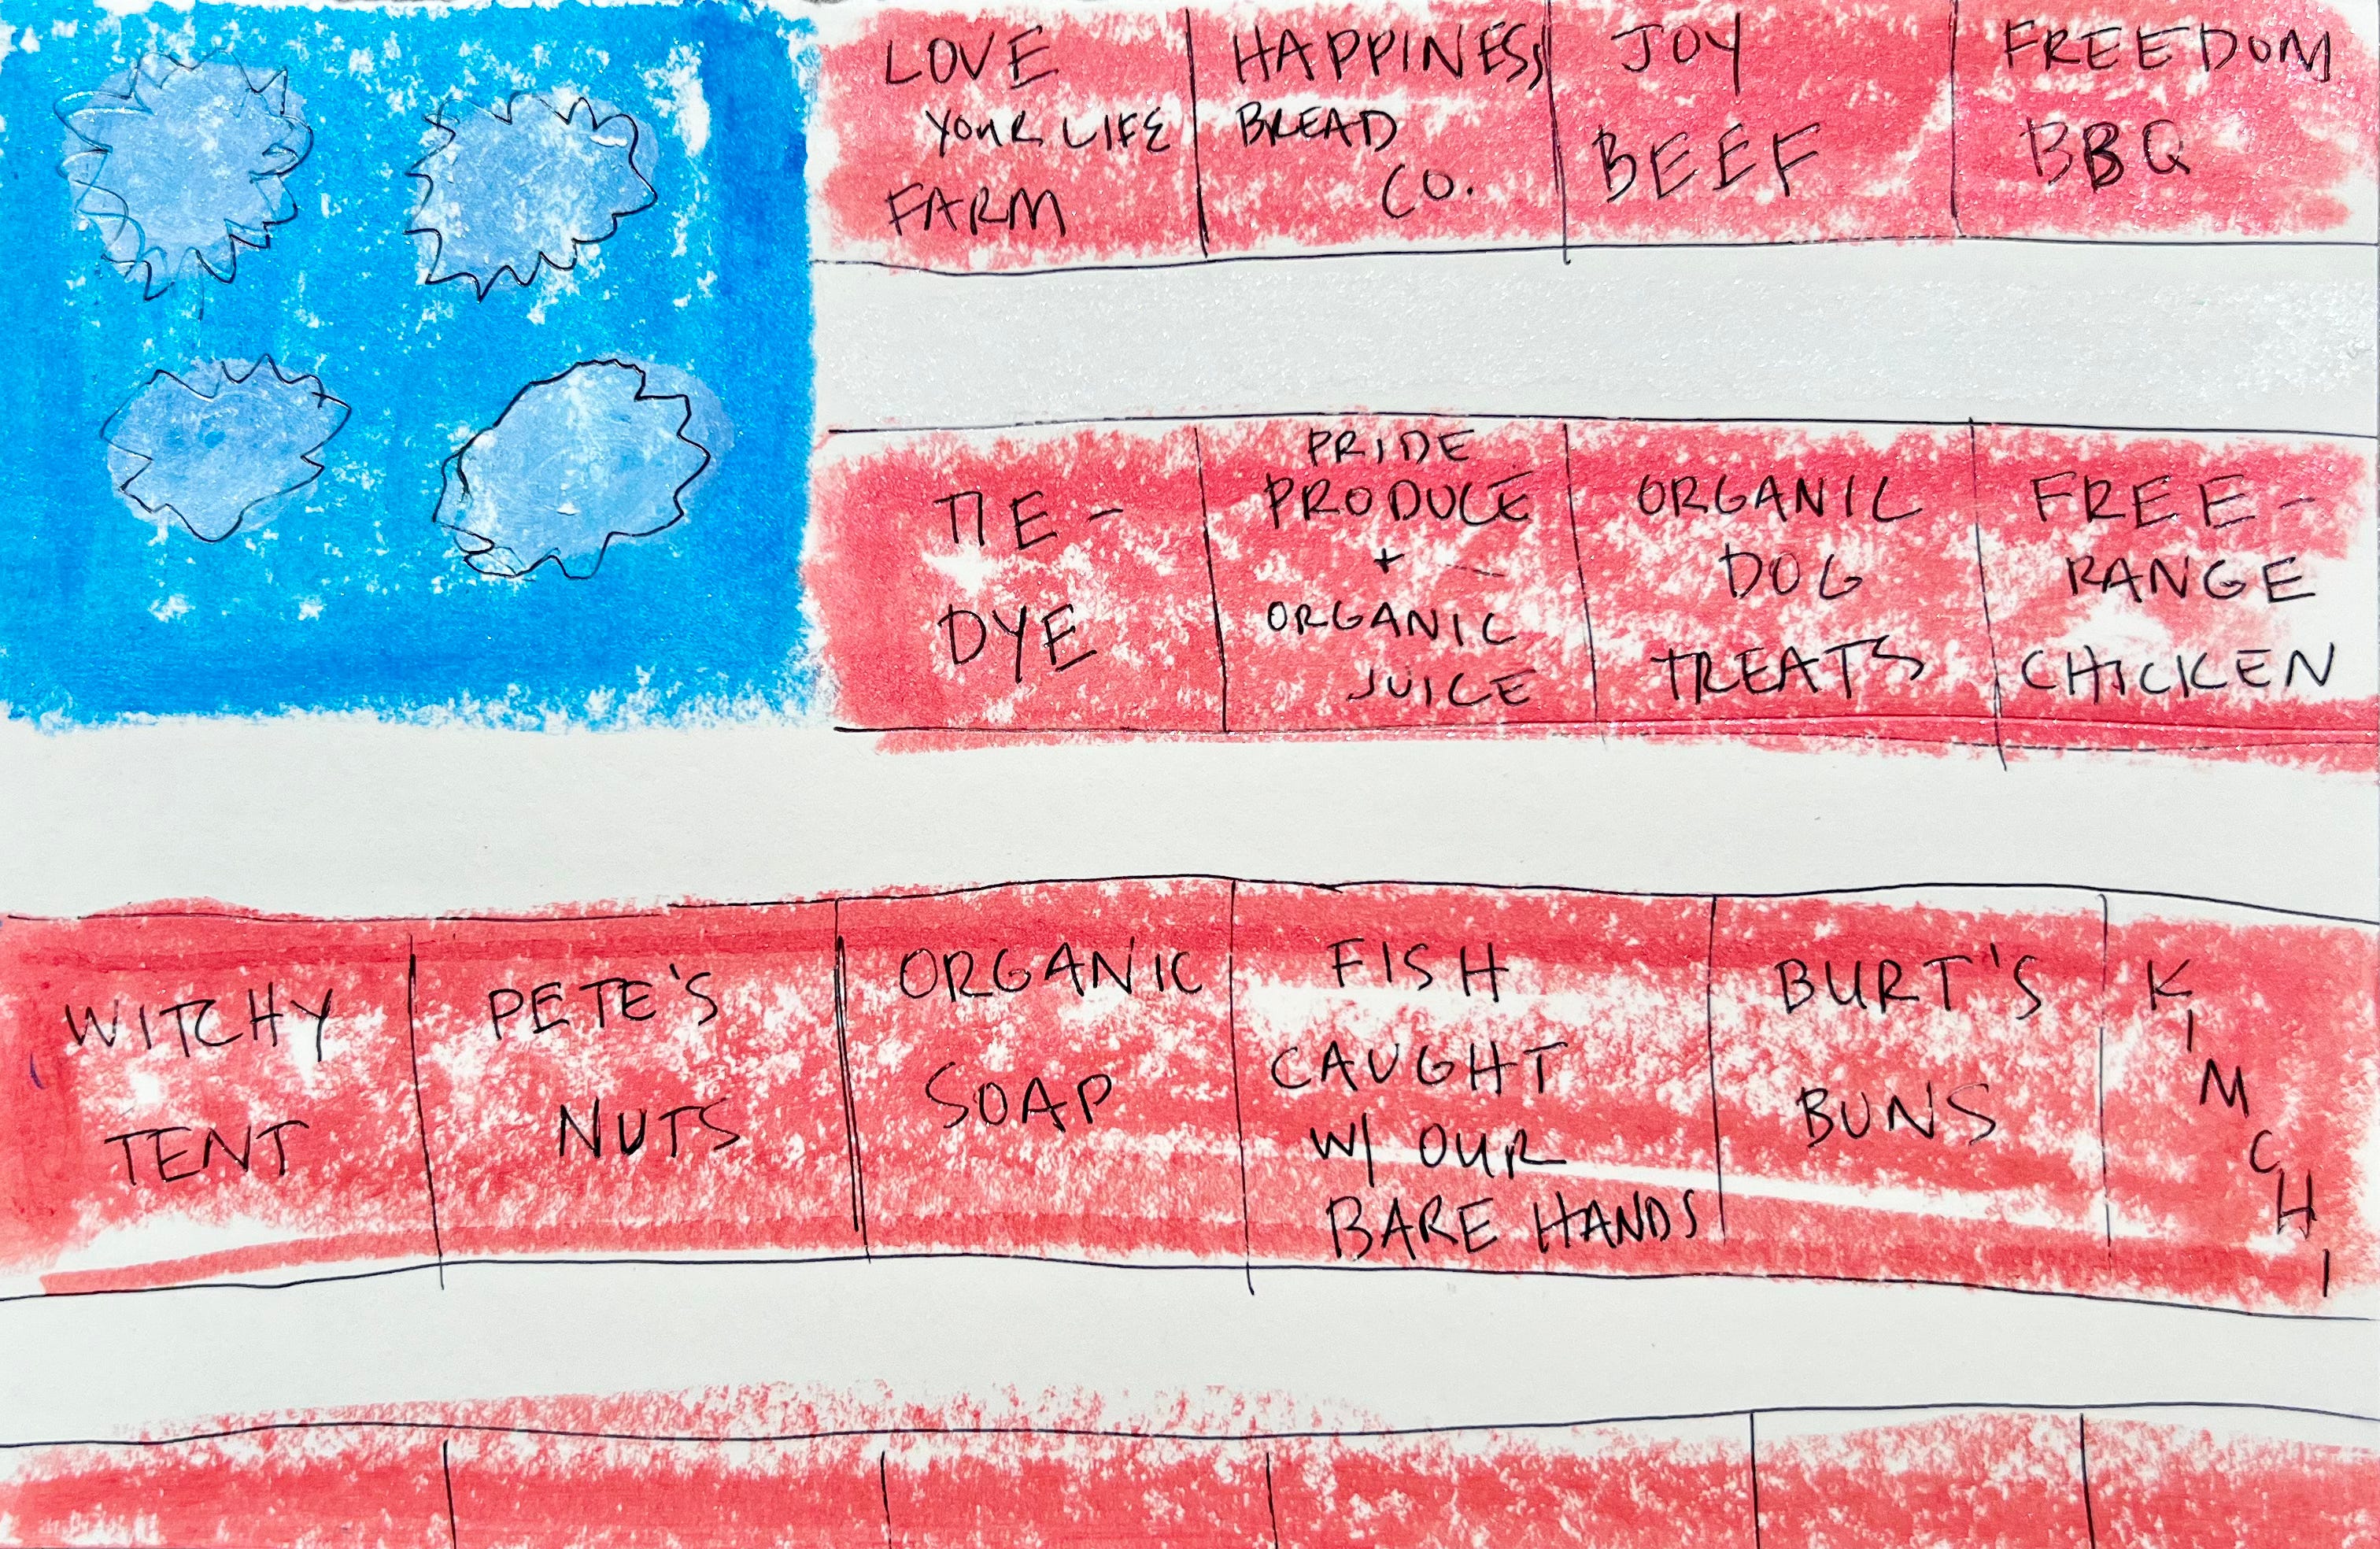 LOVE
YOUR LIFE
FARM
HAPPINESS
BREAD
CO.
JOY
BEEF
FREEDOM
BBQ
TIE-
DYE
PRIDE
PRODUCE
+
ORGANIC
JUICE
ORGANIC
DOG
TREATS
FREE-
RANGE
CHICKEN
WITCHY
TENT
PETE'S
NUTS
ORGANIC
SOAP
FISH
CAUGHT
W/ OUR
BARE HANDS
BURT'S
BUNS
KIMCHI